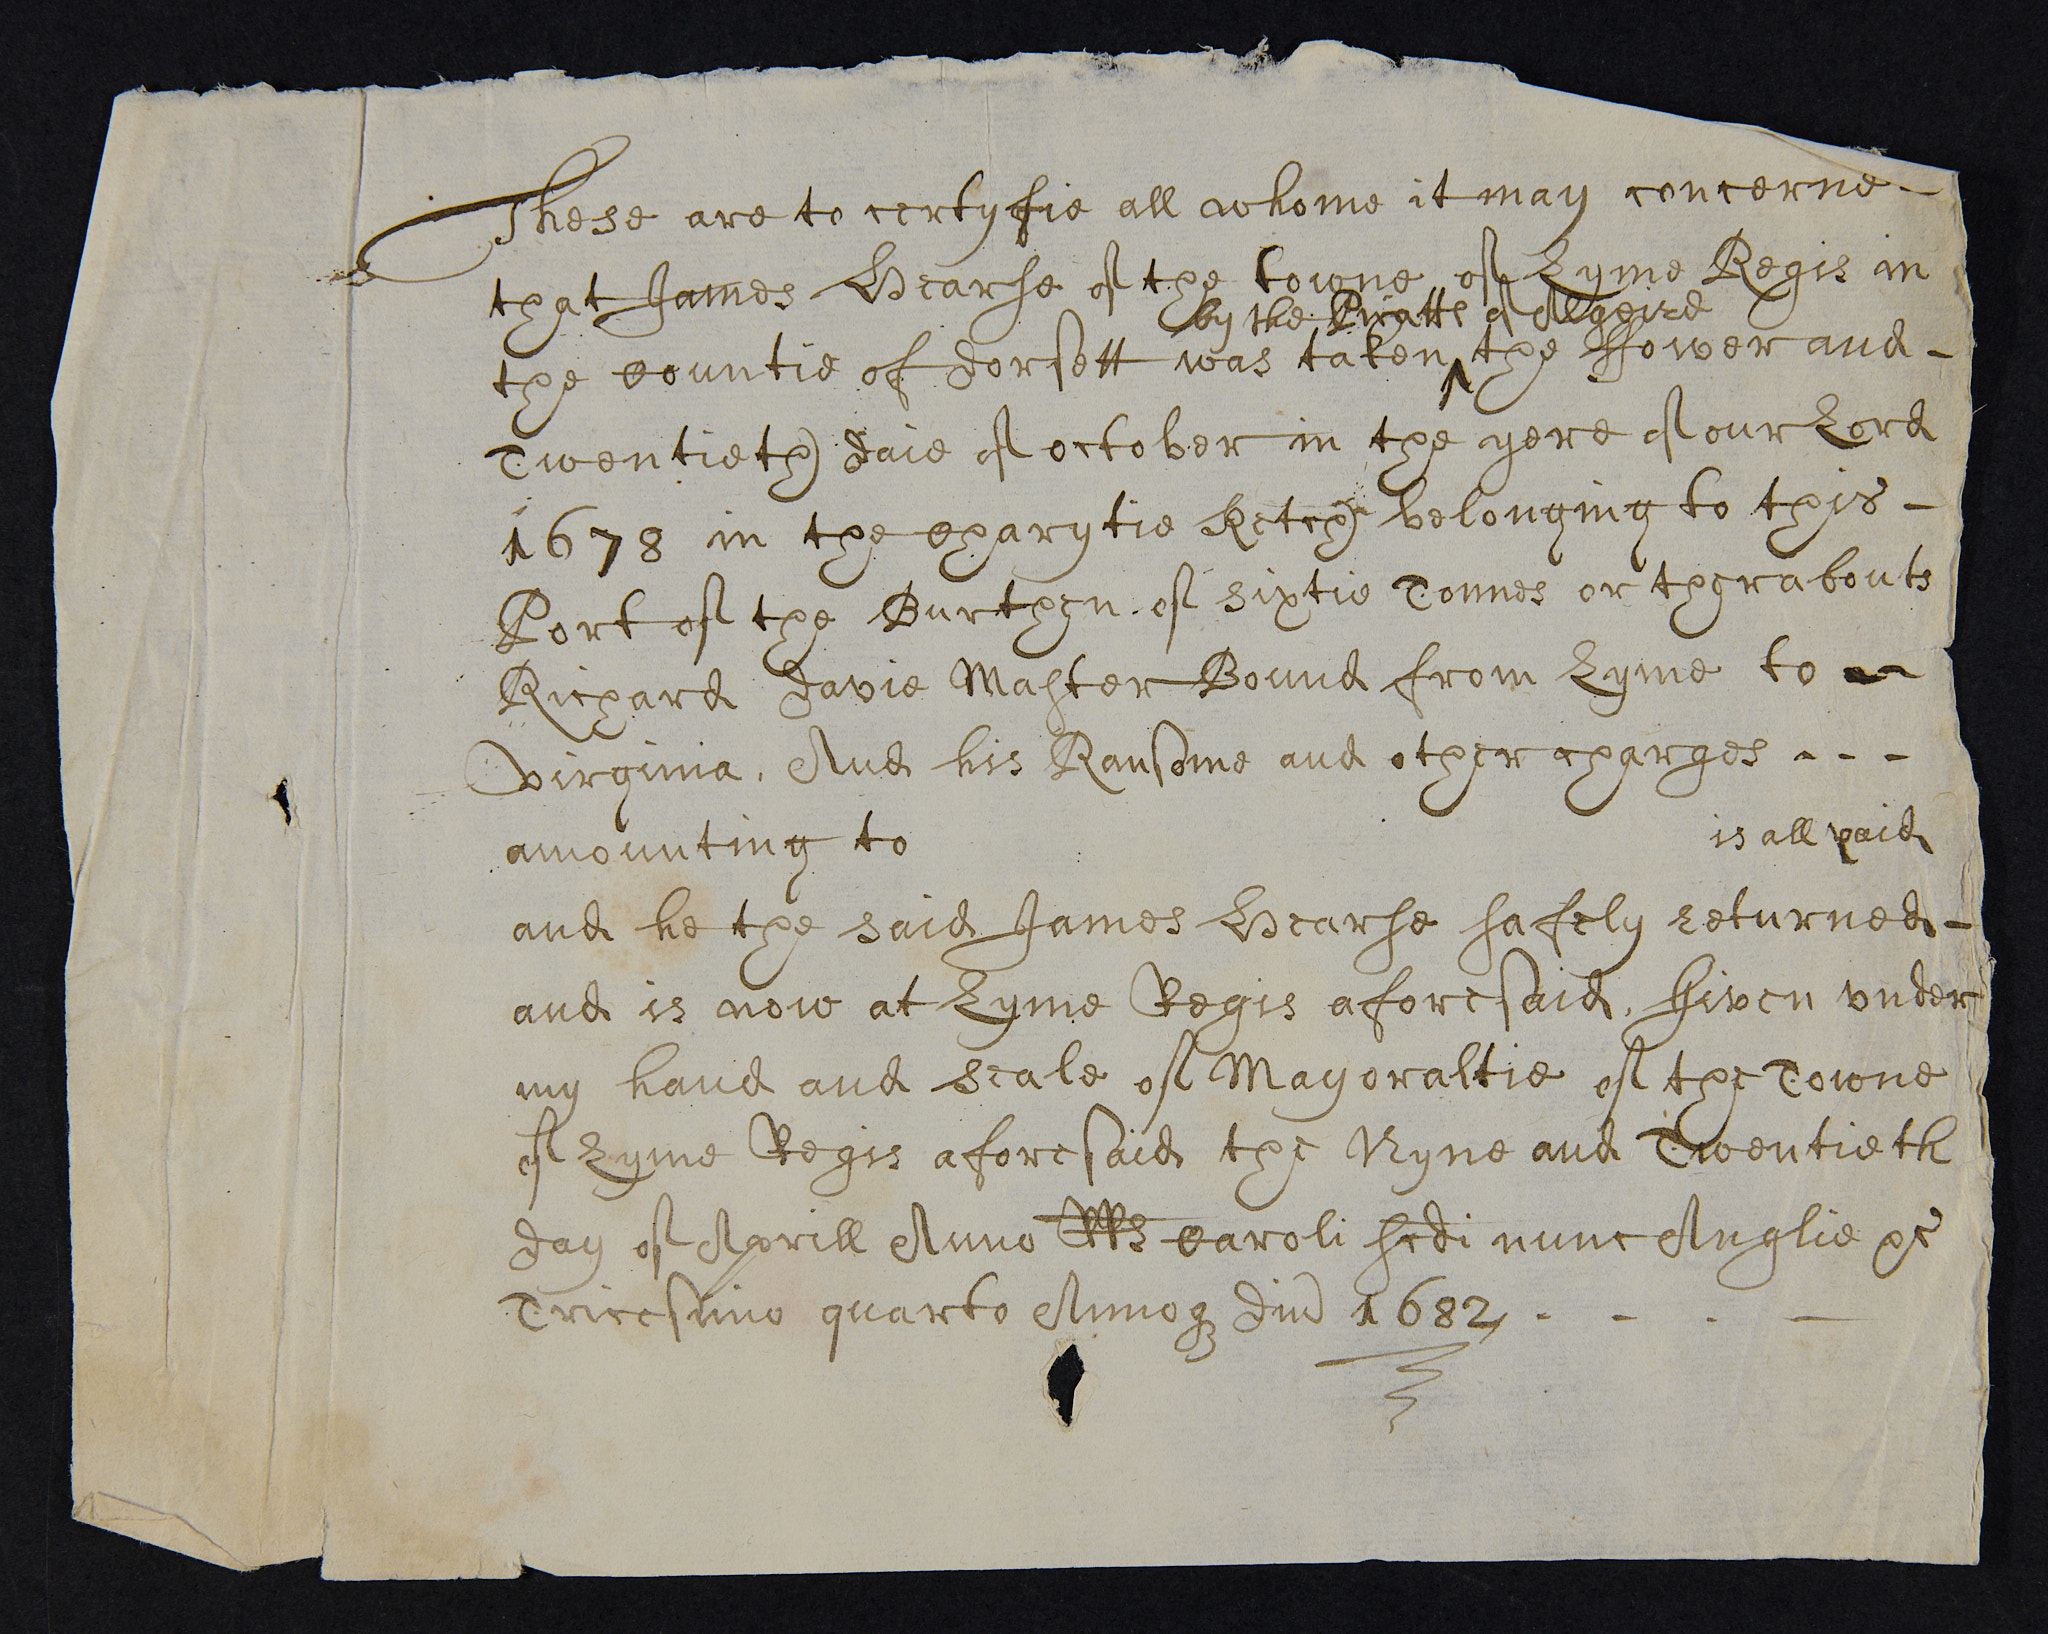 These are to certyfie all whome it may concerne -
that James Hearse of the towne of Lyme Regis in
by the Piratts of Algeire
the Countie of Dorsett was taken ^ the ffower and -
Twentieth daie of october in the yere of our Lord
1678 in the Charytie Ketch belonging to this -
Port of the Burthen of sixtie Tonnes or therabouts
Richard Davie Master Bound from Lyme to -
virginia. And his Ransome and other charges - - -
amounting to is all paid
and he the said James Hearse safely returned -
and is now at Lyme Regis aforesaid. Given vnder
my hand and Seale of Mayoraltie of the Towne
of Lyme Regis aforesaid the Nyne and Twentieth
day of Aprill Anno RRs Caroli scdi nunc Anglie &c
Tricesimo quarto Annoq Dni 1682 - - - -